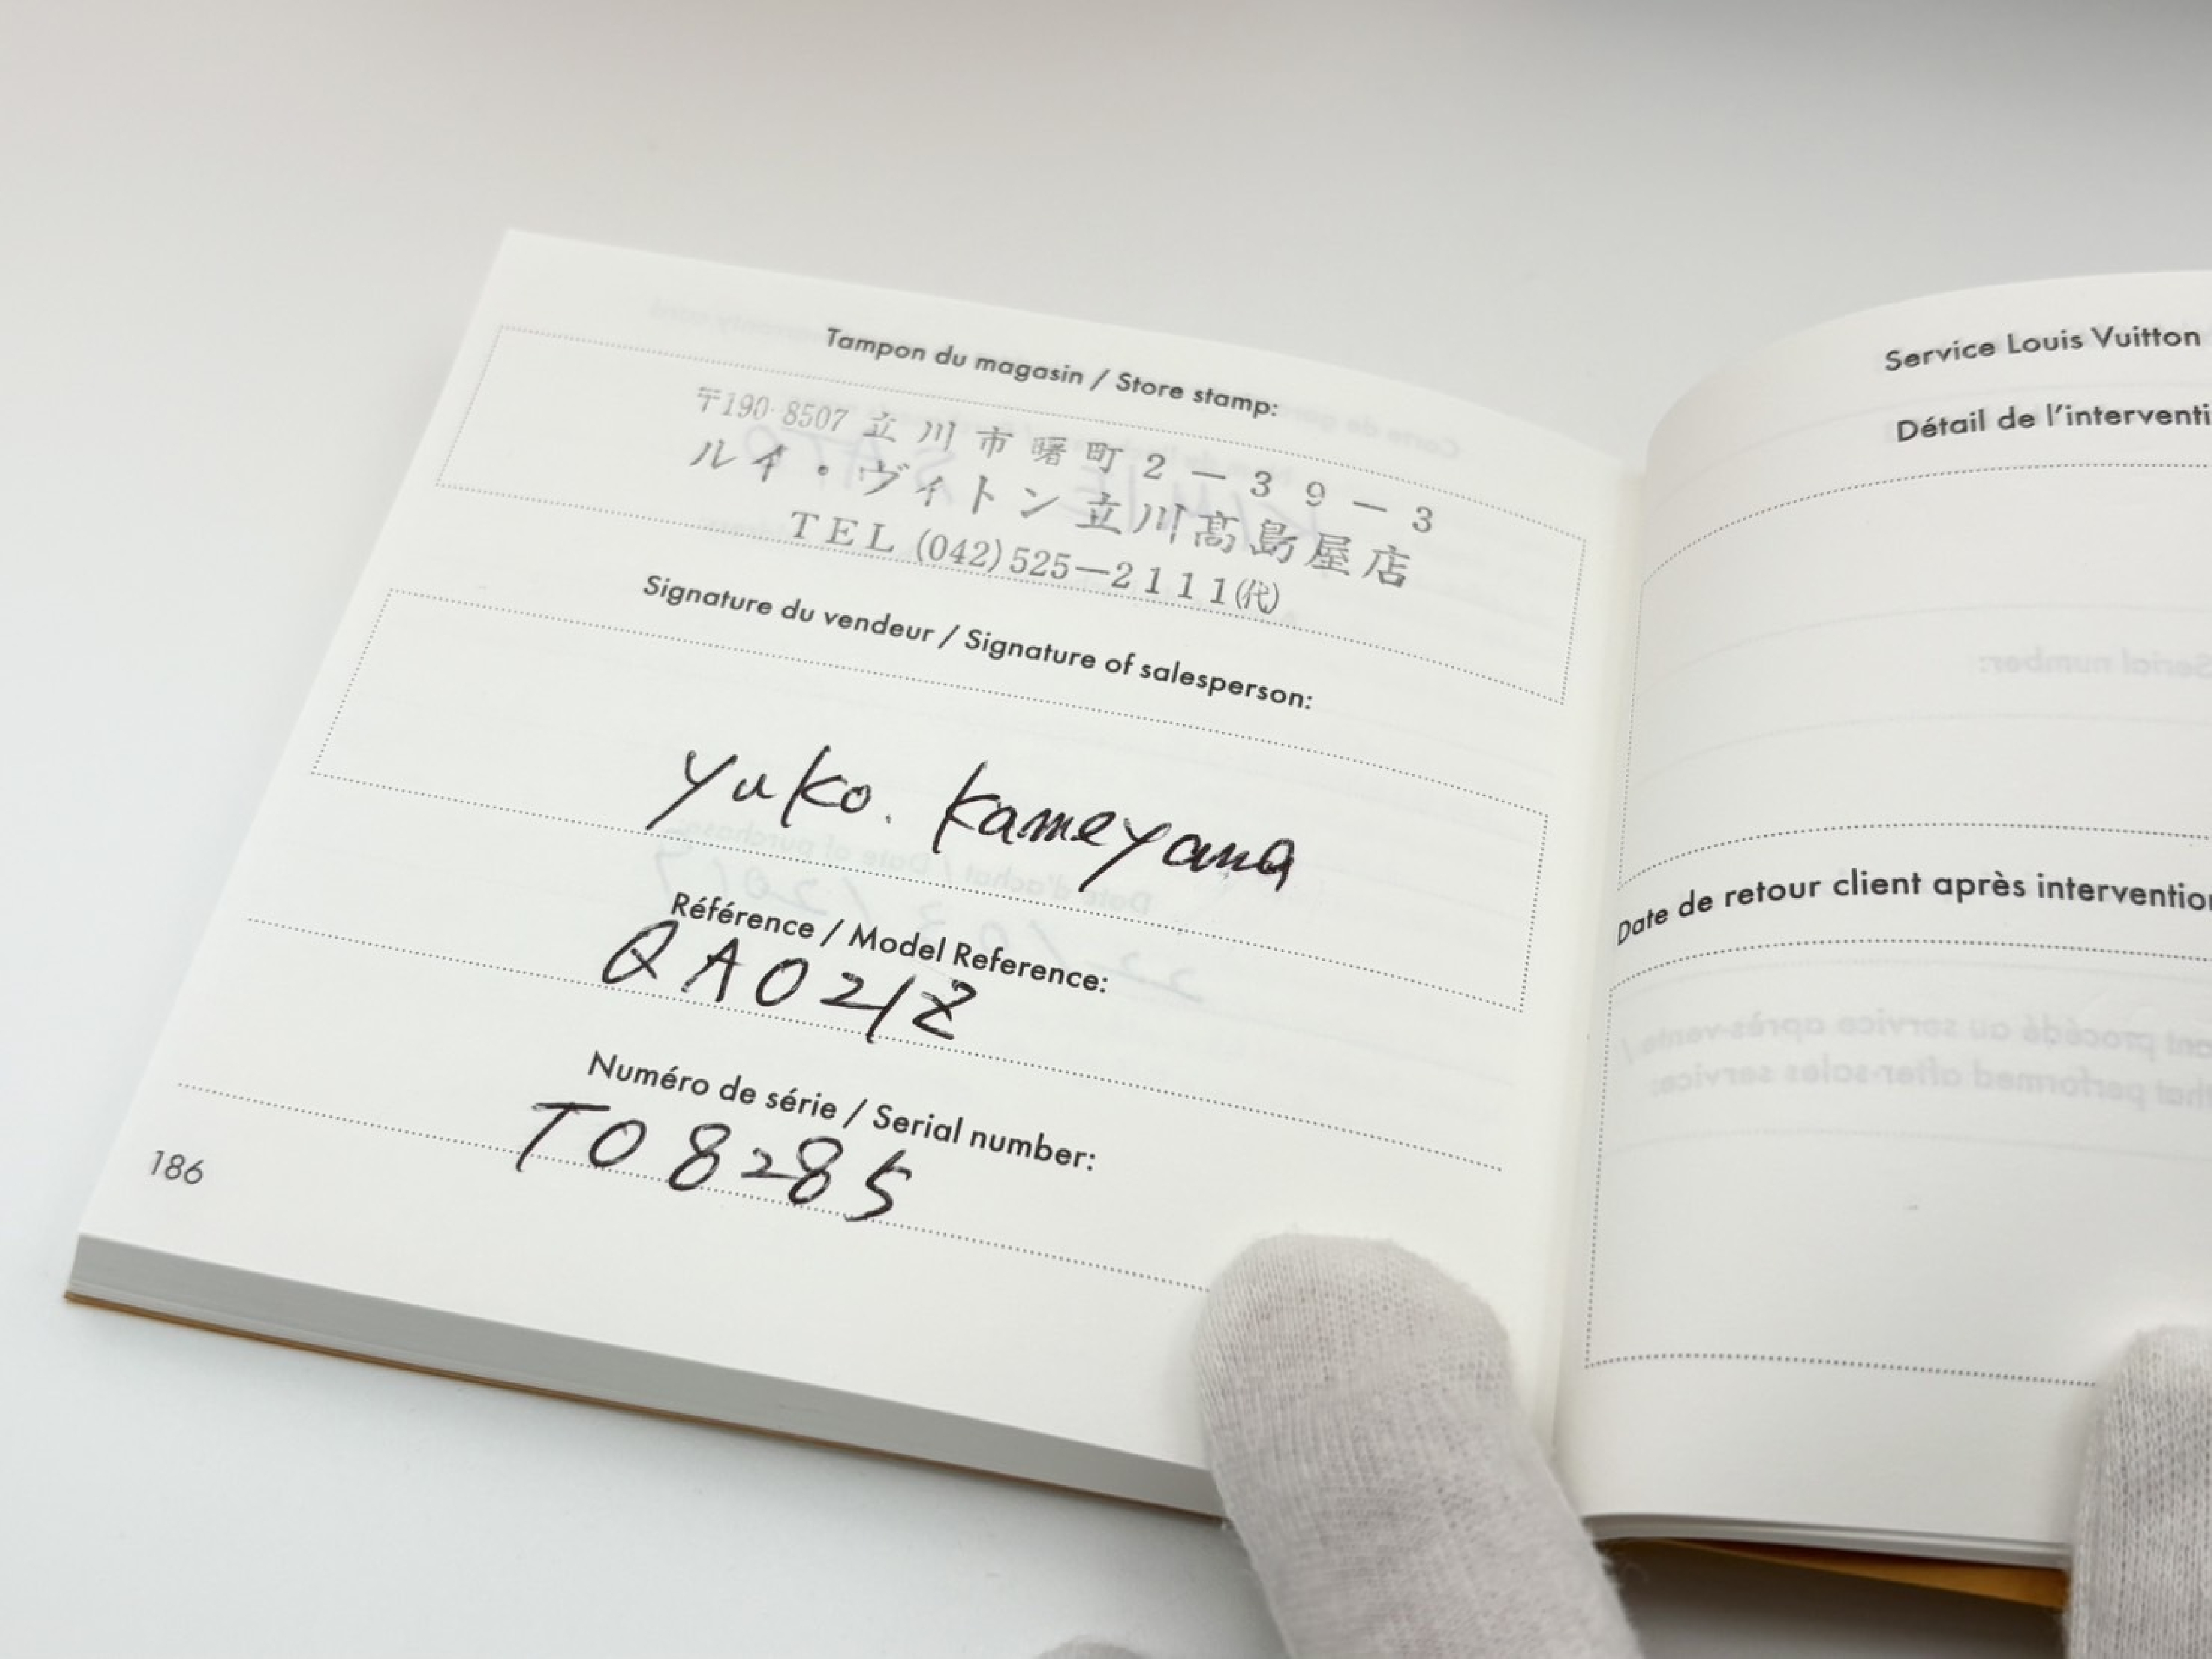 Tampon du magasin / Store stamp:
〒190-8507 立川市曙町2−39−3
ルイ・ヴィトン立川髙島屋店
TEL (042)525−2111(代)
Signature du vendeur / Signature of salesperson:
Yuko. Kameyama
Référence / Model Reference:
QA021Z
Numéro de série / Serial number:
TO8285
186
Service Louis Vuitton
Détail de l'interventi
Date de retour client après interventio